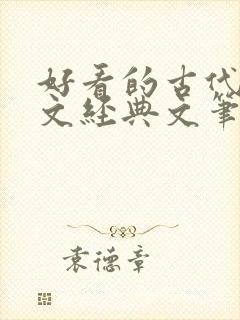 好看的古代
文经典文笔
袁德章